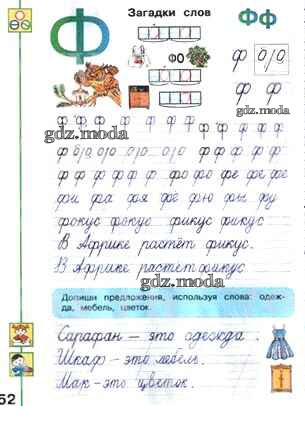 Ф
Загадки слов
Фф
ФО
ф о/о
gdz.moda
ф ф
gdz.moda
ф ф ф ф ф ф ф ф
ф о/о о/о о/о о/о ф ф ф ф ф
ф ф ф ф ф ф фо фо фе фе фе
фи фа фя фе фю фы фу
фокус фокус фикус фикус
В Африке растёт фикус.
В Африке растет фикус
gdz.moda
Допиши предложения, используя слова: одеж-
да, мебель, цветок.
Сарафан — это одежда.
Шкаф - это мебель.
Мак - это цветок.
52